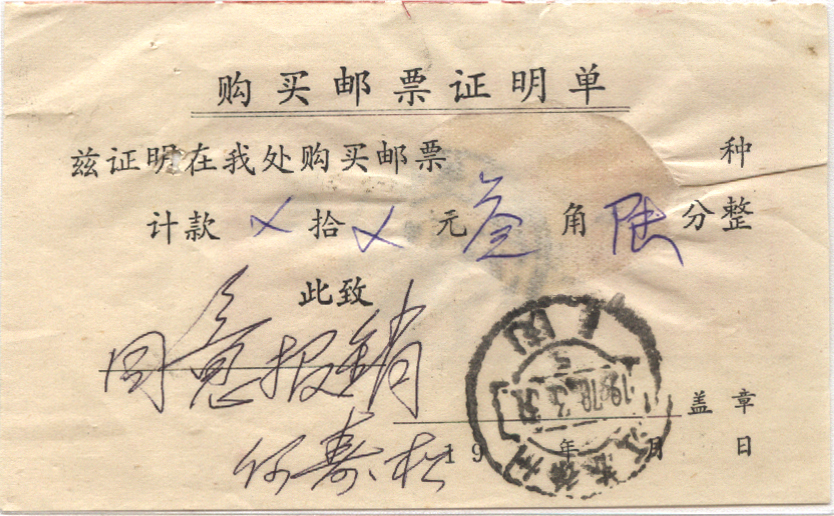 购买邮票证明单
兹证明在我处购买邮票 种
计款 ㄨ 拾 ㄨ 元 叁 角 陆 分整
此致
同意报销
盖章
何寿松
19 年 月 日
1978.3.